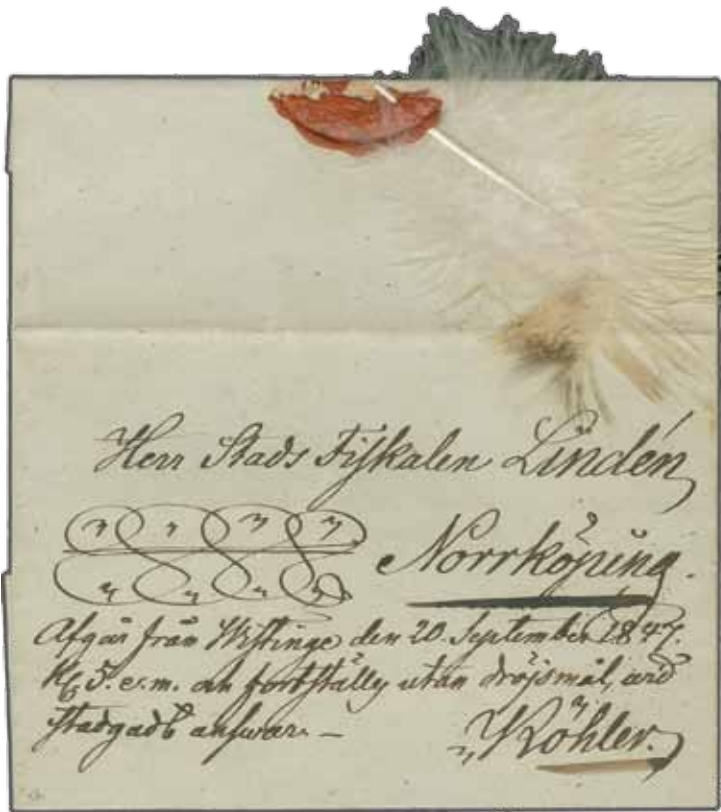 Herr Stads Fiskalen Lindén
Norrköping.
Afgår från Wistinge den 20. September 1847.
Kl 5. e.m. och fortställes utan dröjsmål, wid
stadgadt answar. –
Köhler.